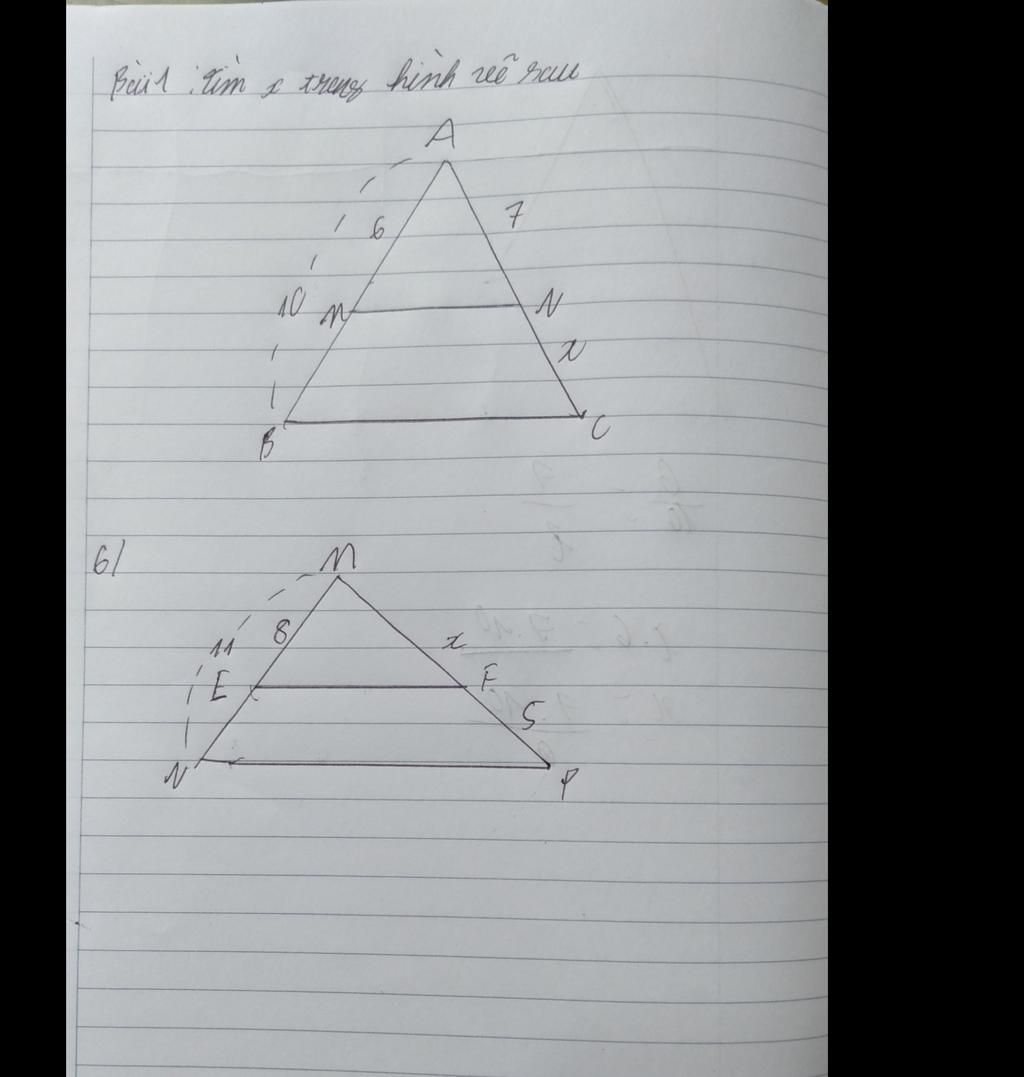 Bài 1 : tìm x trong hình vẽ sau
A
6 7
10 M N
x
B C
b/ M
11 8 x
E F
5
N P